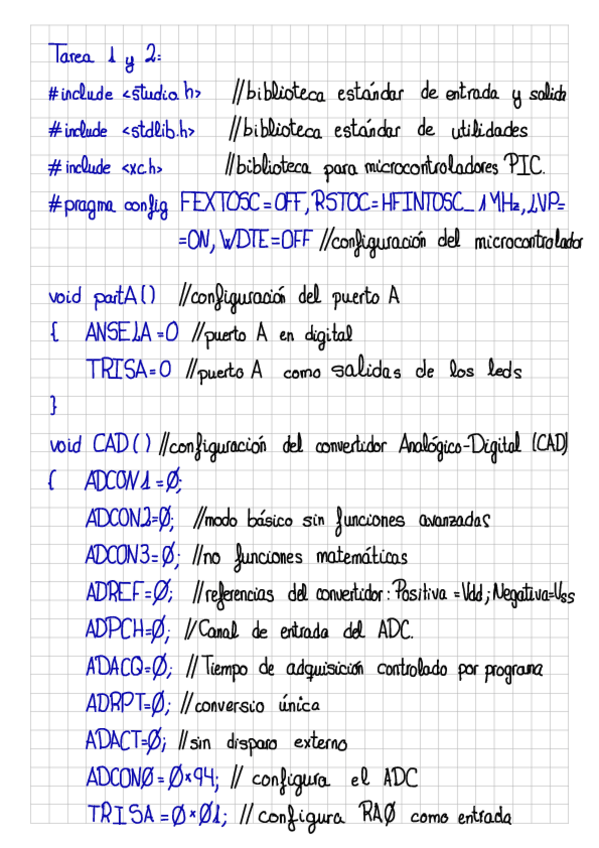 Tarea 1 y 2:
#include <studio.h> //biblioteca estándar de entrada y salida
#include <stdlib.h> //biblioteca estándar de utilidades
#include <xc.h> //biblioteca para microcontroladores PIC.
#pragma config FEXTOSC=OFF, RSTOC=HFINTOSC_1MHz, LVP=
=ON, WDTE=OFF //configuración del microcontrolador
void partA() //configuración del puerto A
{ ANSELA=0 //puerto A en digital
TRISA=0 //puerto A como salidas de los leds
}
void CAD() //configuración del convertidor Analógico-Digital (CAD)
{ ADCON1=Ø;
ADCON2=Ø; //modo básico sin funciones avanzadas
ADCON3=Ø; //no funciones matemáticas
ADREF=Ø; //referencias del convertidor: Positiva=Vdd; Negativa=Uss
ADPCH=Ø; //Canal de entrada del ADC.
ADACQ=Ø; //Tiempo de adquisición controlado por programa
ADRPT=Ø; //conversio única
ADACT=Ø; //sin disparo externo
ADCONØ=Ø×94; // configura el ADC
TRISA=Ø×Ø1; // configura RAØ como entrada